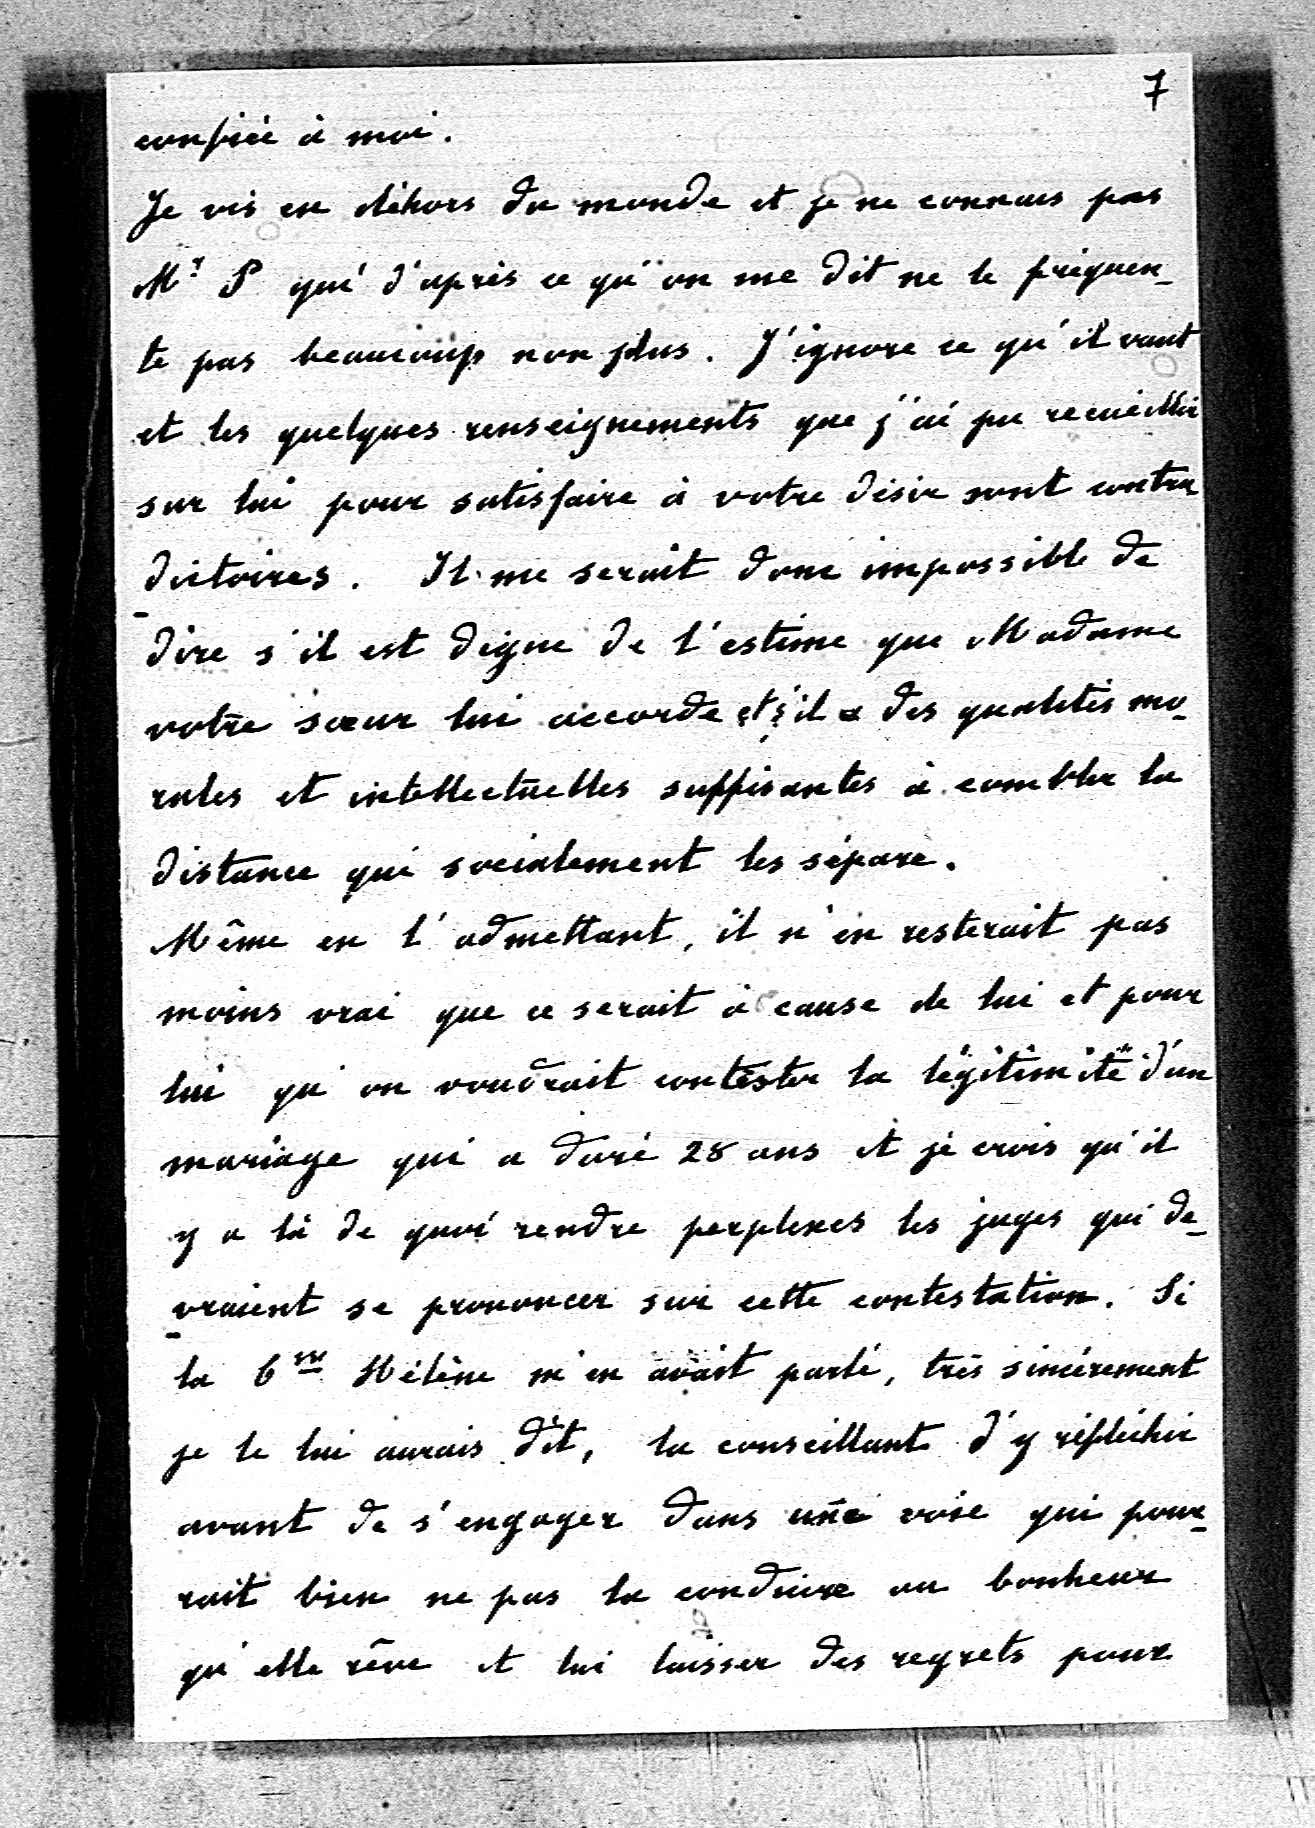 7
confiée à moi.
Je vis en déhors du monde et je ne connais pas
Mr P qui d'après ce qu'on me dit ne le fréquen-
te pas beaucoup non plus. J'ignore ce qu'il vaut
et les quelques renseignements que j'ai pu recueillir
sur lui pour satisfaire à votre désir sont contra
dictoires. Il me serait donc impossible de
dire s'il est digne de l'estime que Madame
votre sœur lui accorde et s'il a des qualités mo-
rales et intellectuelles suffisantes à combler la
distance qui socialement les sépare.
Même en l'admettant, il n'en resterait pas
moins vrai que ce serait à cause de lui et pour
lui qu'on voudrait contester la légitimité d'un
mariage qui a duré 28 ans et je crois qu'il
y a là de quoi rendre perplexes les juges qui de-
vraient se prononcer sur cette contestation. Si
la Csse Hélène m'en avait parlé, très sincérement
je le lui aurais dit, la conseillant d'y réfléchir
avant de s'engager dans une voie qui pour-
rait bien ne pas la conduire au bonheur
qu'elle rêve et lui laisser des regrets pour